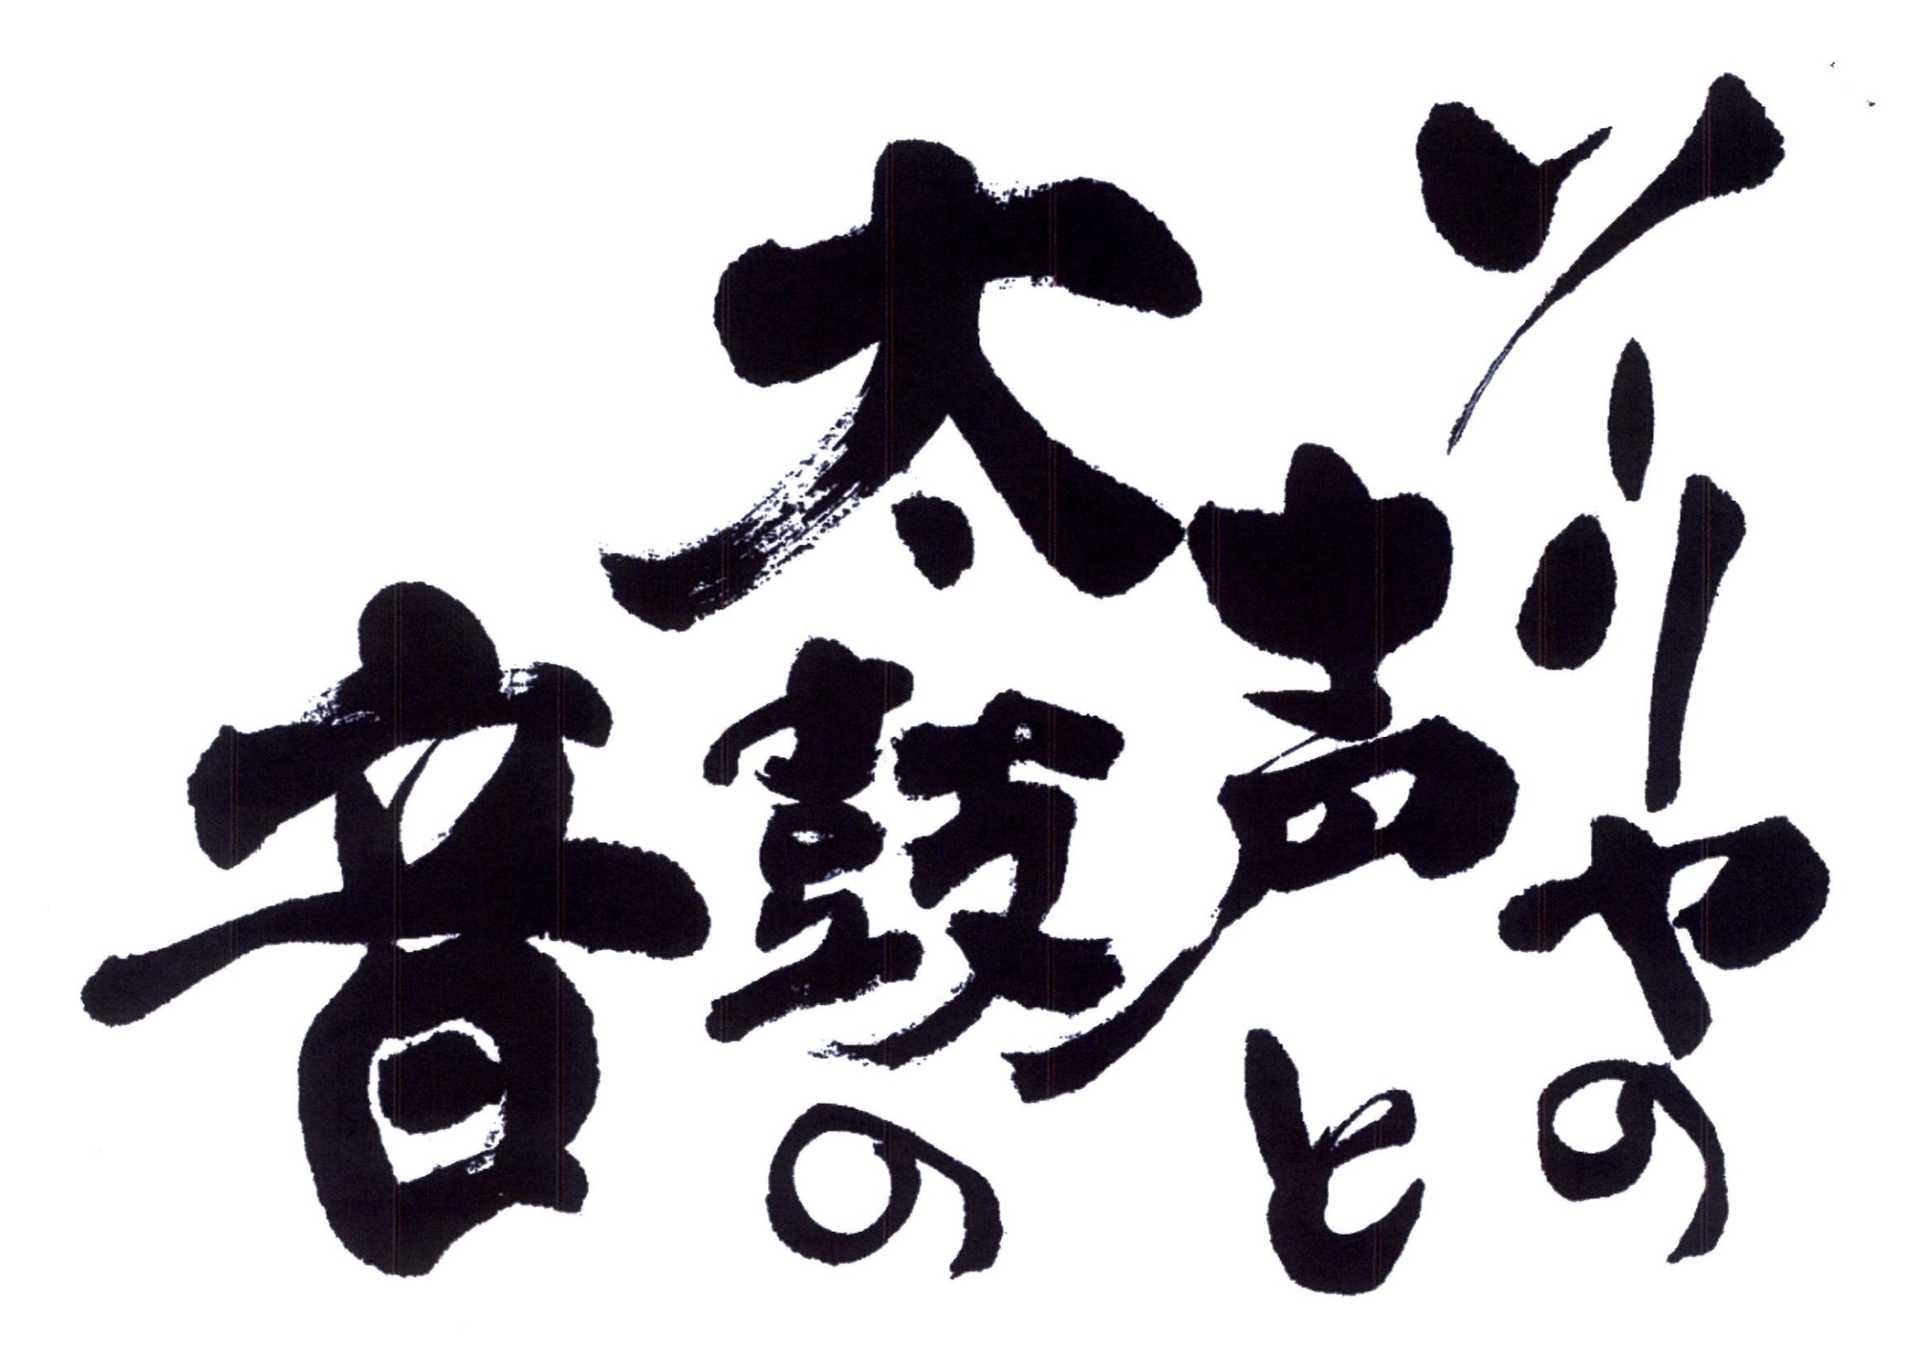 ソーリヤの
声と
太鼓の
音